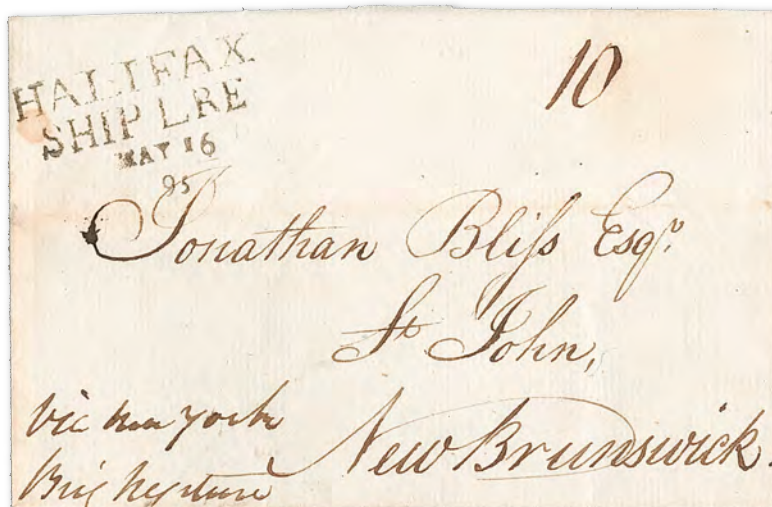 HALIFAX
SHIP LRE
MAY 16
95
10
Jonathan Bliſs Esqr.
St John,
New Brunswick.
via new york
Brig Neptune